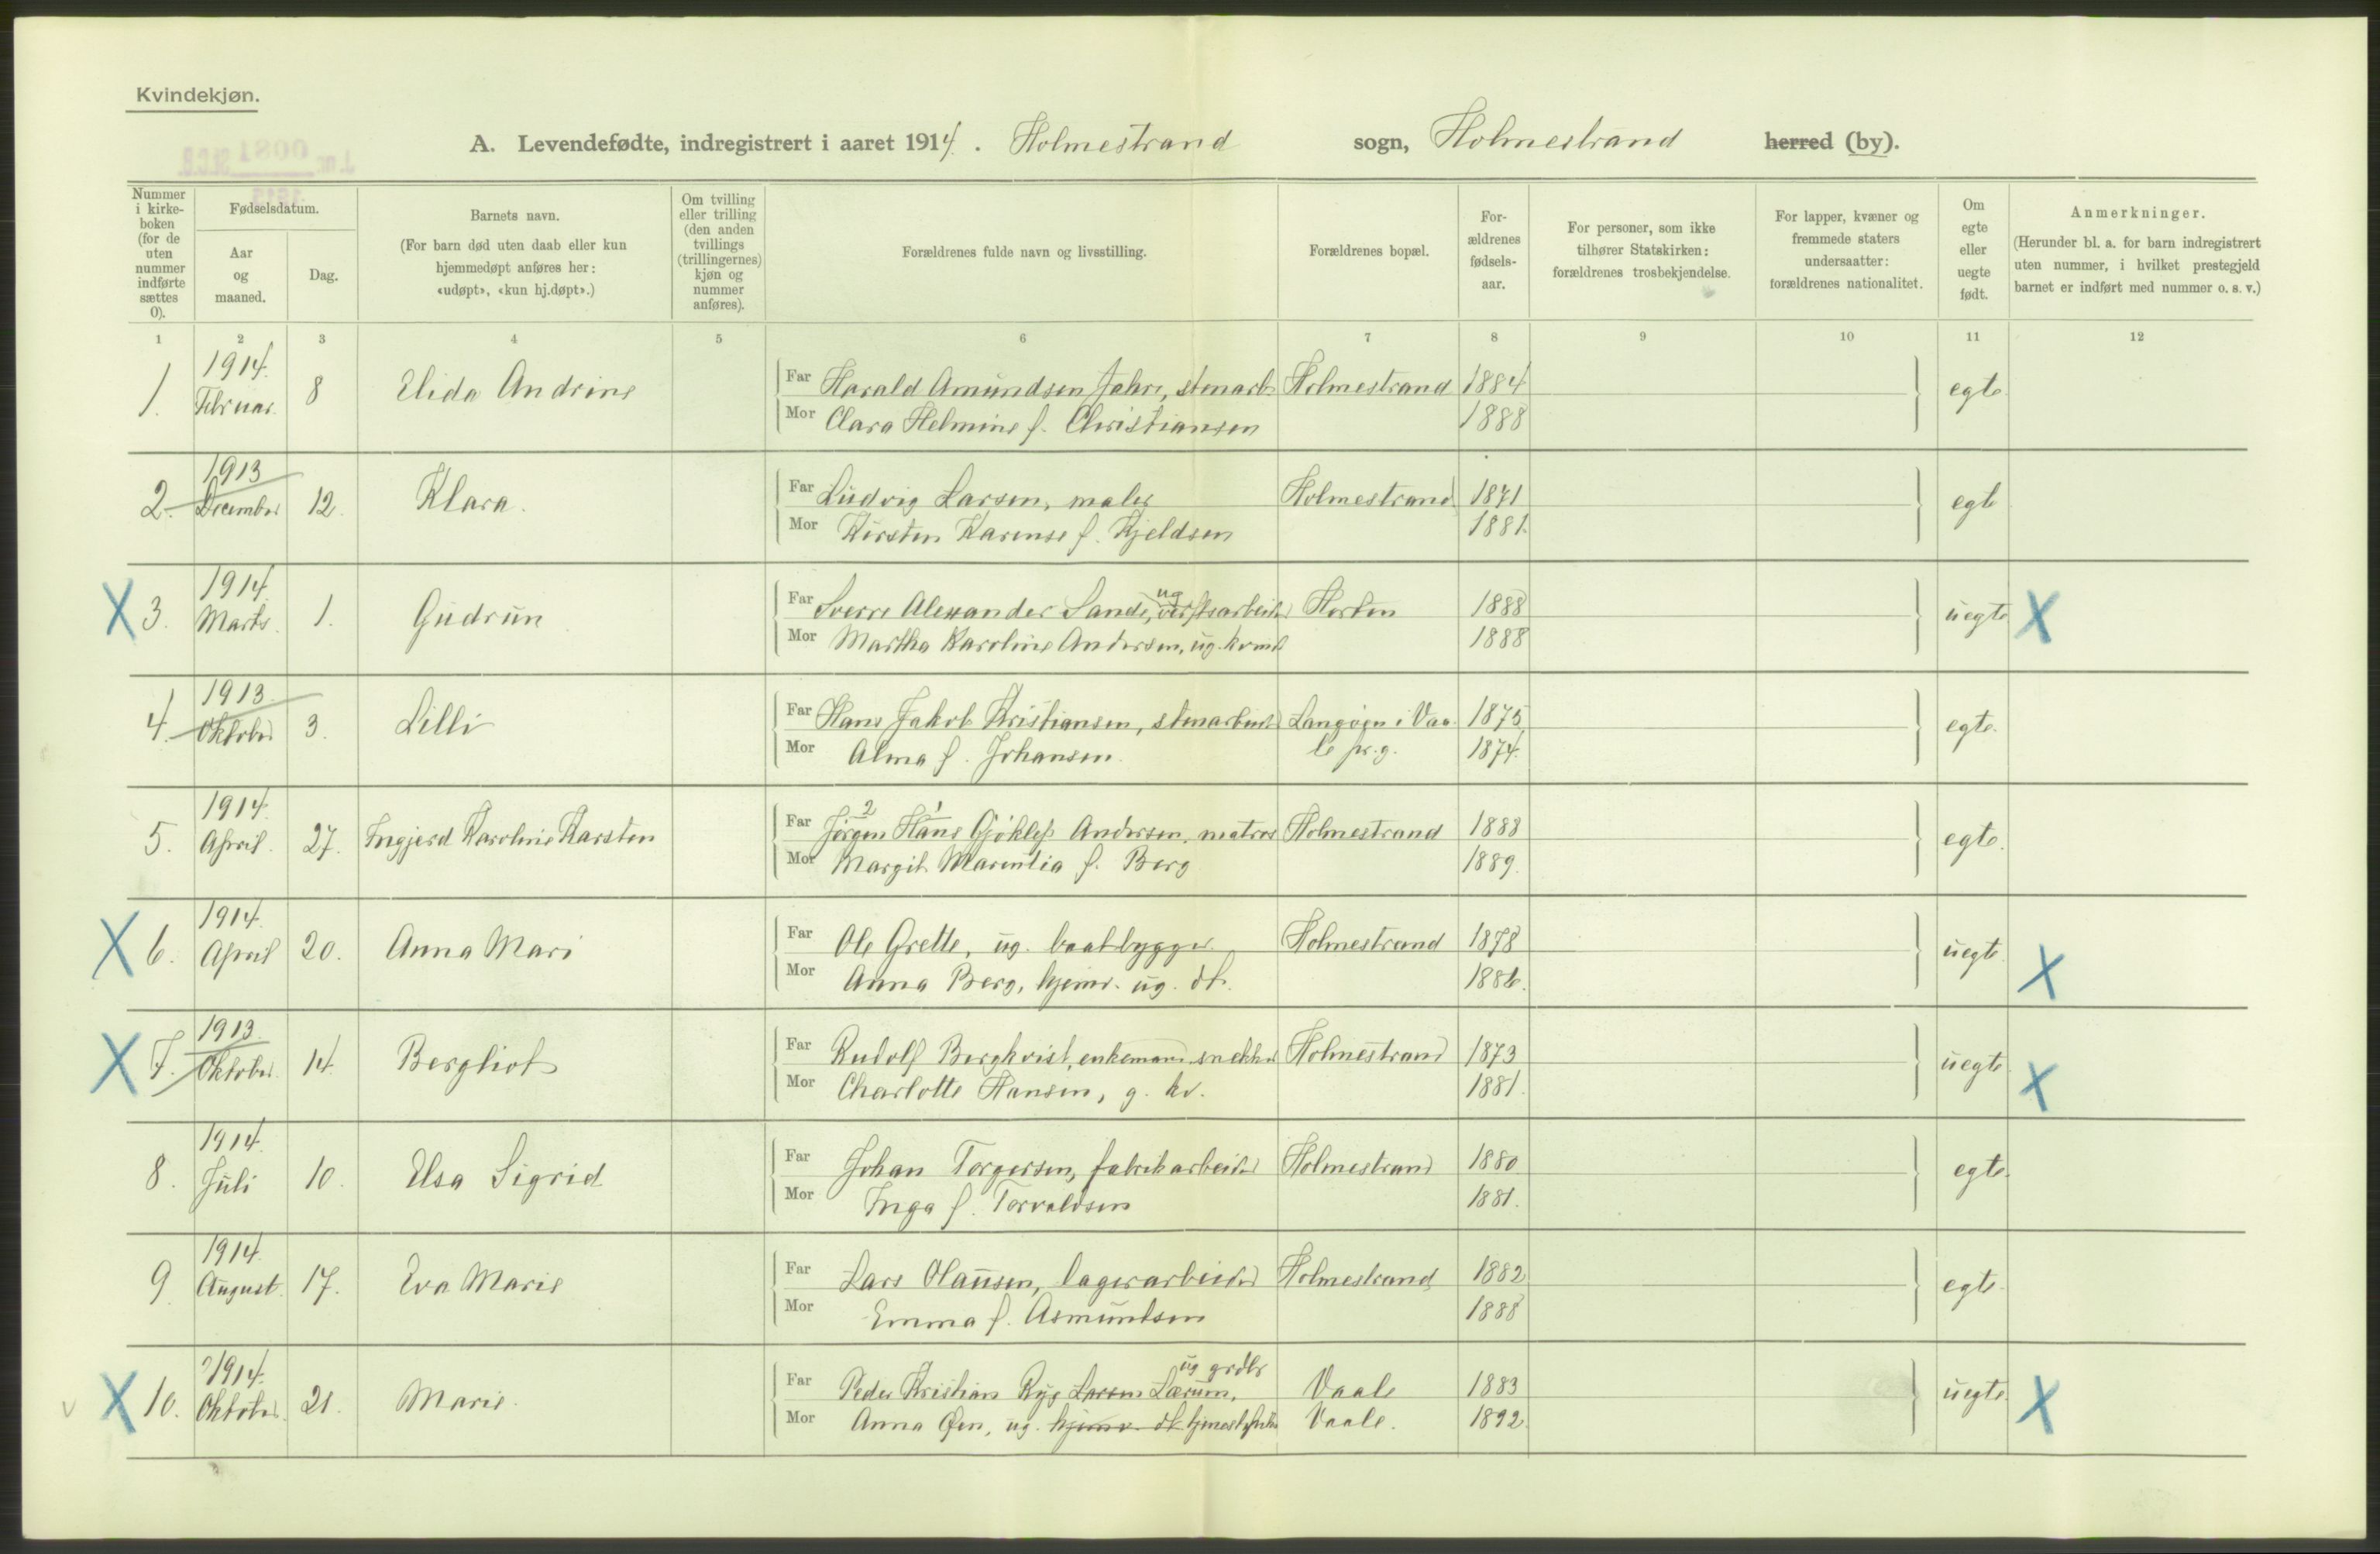 Kvindekjøn.
A. Levendefødte, indregistrert i aaret 1914. Holmestrand sogn, Holmestrand herred (by).
Nummer i kirkeboken (for de uten nummer indførte sættes 0).
Fødselsdatum.
Aar og maaned.
Dag.
Barnets navn.
(For barn død uten daab eller kun hjemmedøpt anføres her: «udøpt», «kun hj.døpt».)
Om tvilling eller trilling (den anden tvillings (trillingernes) kjøn og nummer anføres).
Forældrenes fulde navn og livsstilling.
Forældrenes bopæl.
Forældrenes fødselsaar.
For personer, som ikke tilhører Statskirken: forældrenes trosbekjendelse.
For lapper, kvæner og fremmede staters undersaatter: forældrenes nationalitet.
Om egte eller uegte født.
Anmerkninger.
(Herunder bl. a. for barn indregistrert uten nummer, i hvilket prestegjeld barnet er indført med nummer o. s. v.)
1 2 3 4 5 6 7 8 9 10 11 12
1. 1914. Februar. 8 Elida Andrine Far Harald Amundsen Jahre, stenarb. Holmestrand 1884 egte.
Mor Clara Helmine f. Christiansen 1888
2. 1913 December 12. Klara. Far Ludvig Larsen, maler Holmestrand 1871 egte
Mor Kirsten Karense f. Kjeldsen 1881.
X 3. 1914. Marts. 1. Gudrun Far Sverre Alexander Sande, ug verftsarbeider Horten 1888 uegte X
Mor Martha Karoline Andersen, ug. kvinde 1888
4. 1913 Oktober 3. Lilli Far Hans Jakob Kristiansen, stenarbeider Langøen i Vaa- 1875 egte.
Mor Alma f. Johansen le pr.g. 1874.
5. 1914. April. 27. Ingjerd Karoline Karsten Far Jørgen 2 Hans 1 Gjøklep Andersen, matros Holmestrand 1888 egte.
Mor Margit Marentia f. Berg 1889.
X 6. 1914. April 20. Anna Mari Far Ole Grette, ug. baatbygger Holmestrand 1878 uegte. X
Mor Anna Berg, hjemv. ug. dt. 1886.
X 7. 1913. Oktober. 14. Bergliot Far Rudolf Bergkvist, enkemand snekker Holmestrand 1873 uegte X
Mor Charlotte Hansen, g. kv. 1881.
8. 1914. Juli 10. Elsa Sigrid Far Johan Torgersen, fabrikarbeider Holmestrand 1880 egte.
Mor Inga f. Torvaldsen 1881.
9. 1914. August. 17. Eva Marie Far Lars Olaussen, lagerarbeider Holmestrand 1882 egte.
Mor Emma f. Asmundsen 1888
X 10. 1914. Oktober. 21. Marie. Far Peder Kristian Larsen Lærum, ug grdbr Vaale 1883 uegte. X
Mor Anna Øen, ug. hjemv. dt. Vaale. 1892.